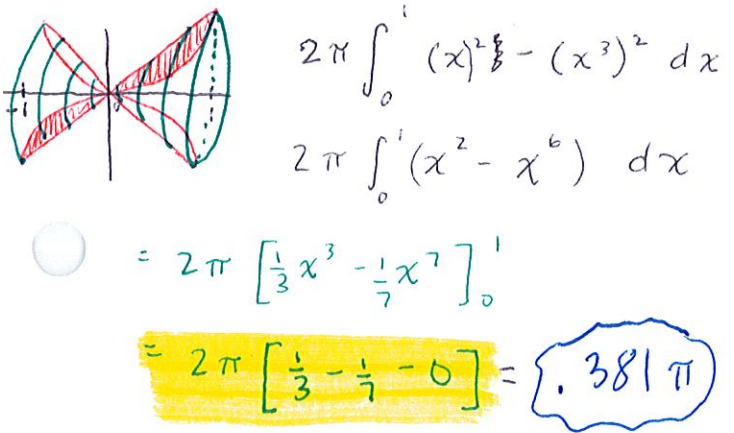 -1
2π ∫₀¹ (x)² - (x³)² dx
2π ∫₀¹ (x² - x⁶) dx
= 2π [⅓x³ - ⅐x⁷]₀¹
= 2π [⅓ - ⅐ - 0] = .381π